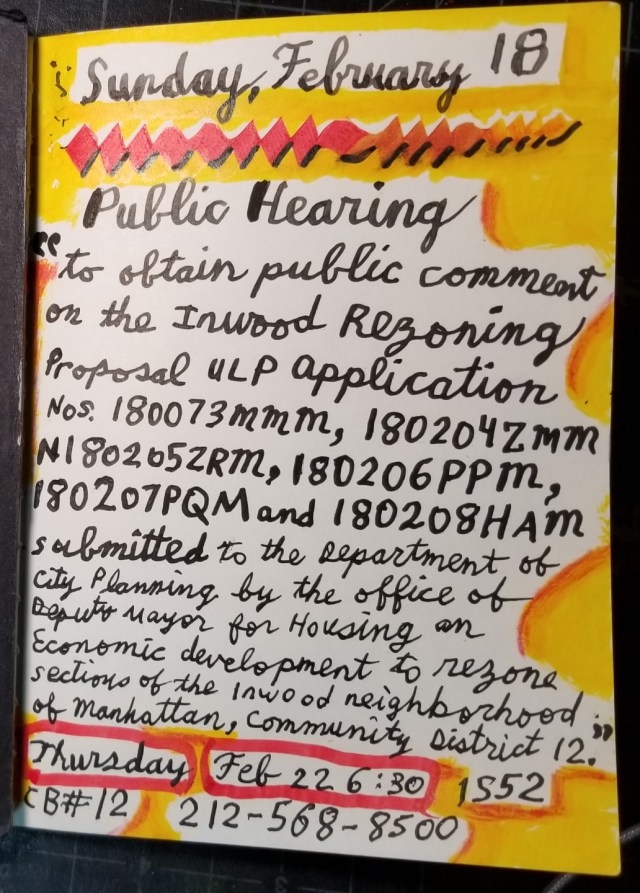 Sunday, February 18
Public Hearing
"to obtain public comment
on the Inwood Rezoning
Proposal ULP Application
Nos. 180073mmm, 180204Zmm
N180205ZRM, 180206PPM,
180207PQM and 180208HAM
submitted to the Department of
City Planning by the office of
Deputy Mayor for Housing an
Economic development to rezone
sections of the Inwood neighborhood
of Manhattan, Community District 12."
Thursday Feb 22 6:30 IS52
CB#12 212-568-8500